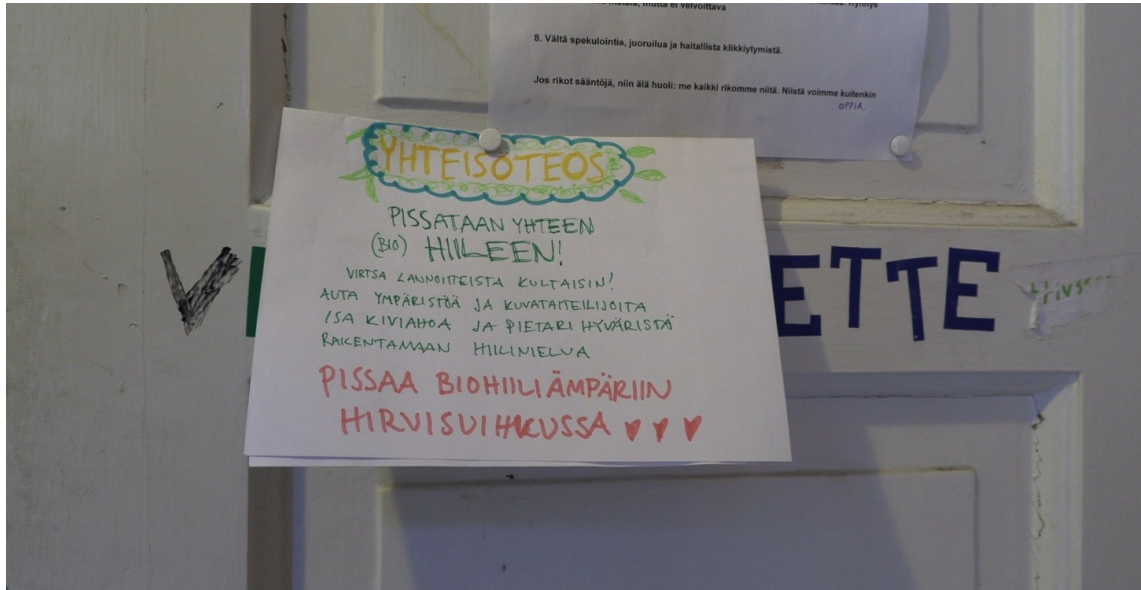 mutta ei velvoittava
8. Vältä spekulointia, juoruilua ja haitallista klikkiytymistä.
Jos rikot sääntöjä, niin älä huoli: me kaikki rikomme niitä. Niistä voimme kuitenkin
OPPIA.
YHTEISÖTEOS
PISSATAAN YHTEEN
(BIO) HIILEEN!
VIRTSA LANNOITTEISTA KULTAISIN!
AUTA YMPÄRISTÖÄ JA KUVATAITEILIJOITA
ISA KIVIAHOA JA PIETARI HYVÄRISTÄ
RAKENTAMAAN HIILINIELUA
PISSAA BIOHIILIÄMPÄRIIN
HIRVISUIHKUSSA ♥ ♥ ♥
V ETTE